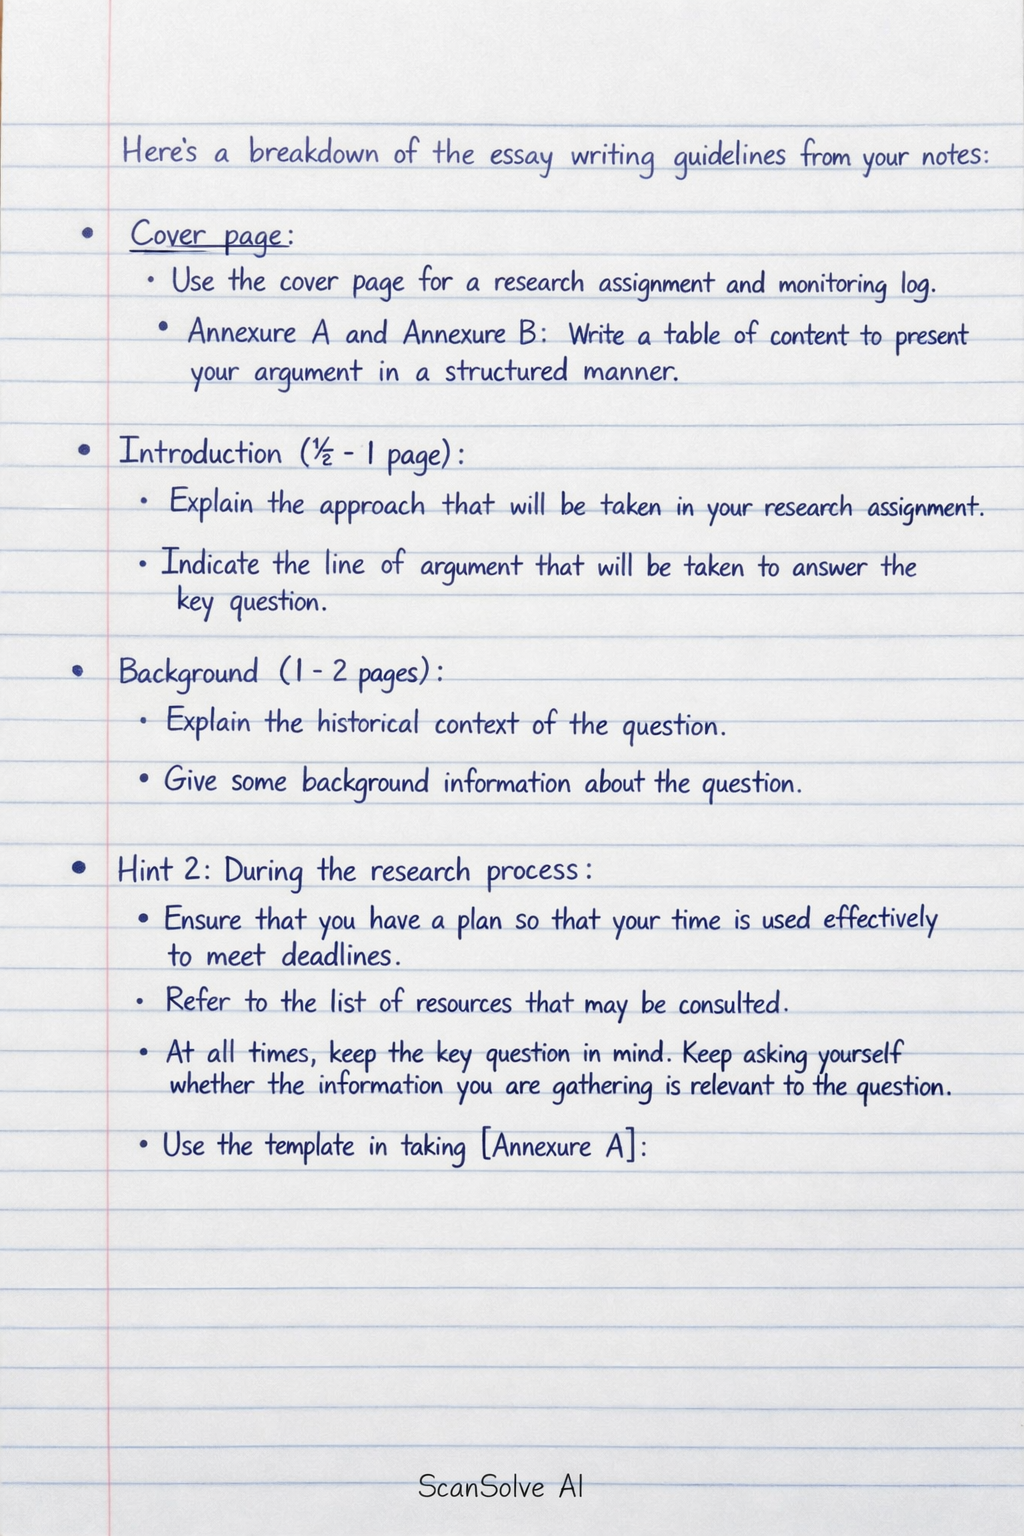 Here's a breakdown of the essay writing guidelines from your notes:
• Cover page:
• Use the cover page for a research assignment and monitoring log.
• Annexure A and Annexure B: Write a table of content to present
your argument in a structured manner.
• Introduction (½ - 1 page):
• Explain the approach that will be taken in your research assignment.
• Indicate the line of argument that will be taken to answer the
key question.
• Background (1 - 2 pages):
• Explain the historical context of the question.
• Give some background information about the question.
• Hint 2: During the research process:
• Ensure that you have a plan so that your time is used effectively
to meet deadlines.
• Refer to the list of resources that may be consulted.
• At all times, keep the key question in mind. Keep asking yourself
whether the information you are gathering is relevant to the question.
• Use the template in taking [Annexure A]:
ScanSolve AI